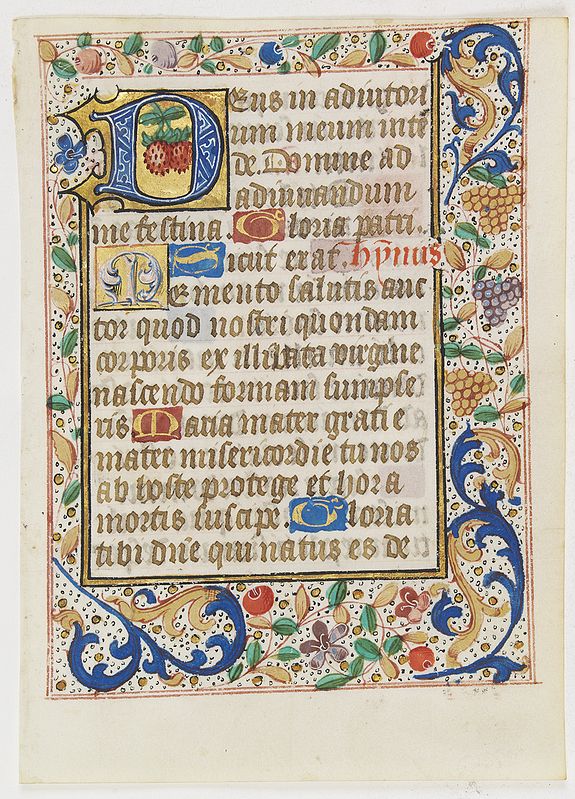 Deus in adiutori
um meum inte
de. Domine ad
adiuuandum
me festina Gloria patri.
Sicut erat. hymnus
Memento salutis auc
tor quod nostri quondam
corporis ex illibata virgine
nascendo formam sumpse
ris Maria mater gratie
mater misericordie tu nos
ab hoste protege et hora
mortis suscipe. Gloria
tibi dne qui natus es de